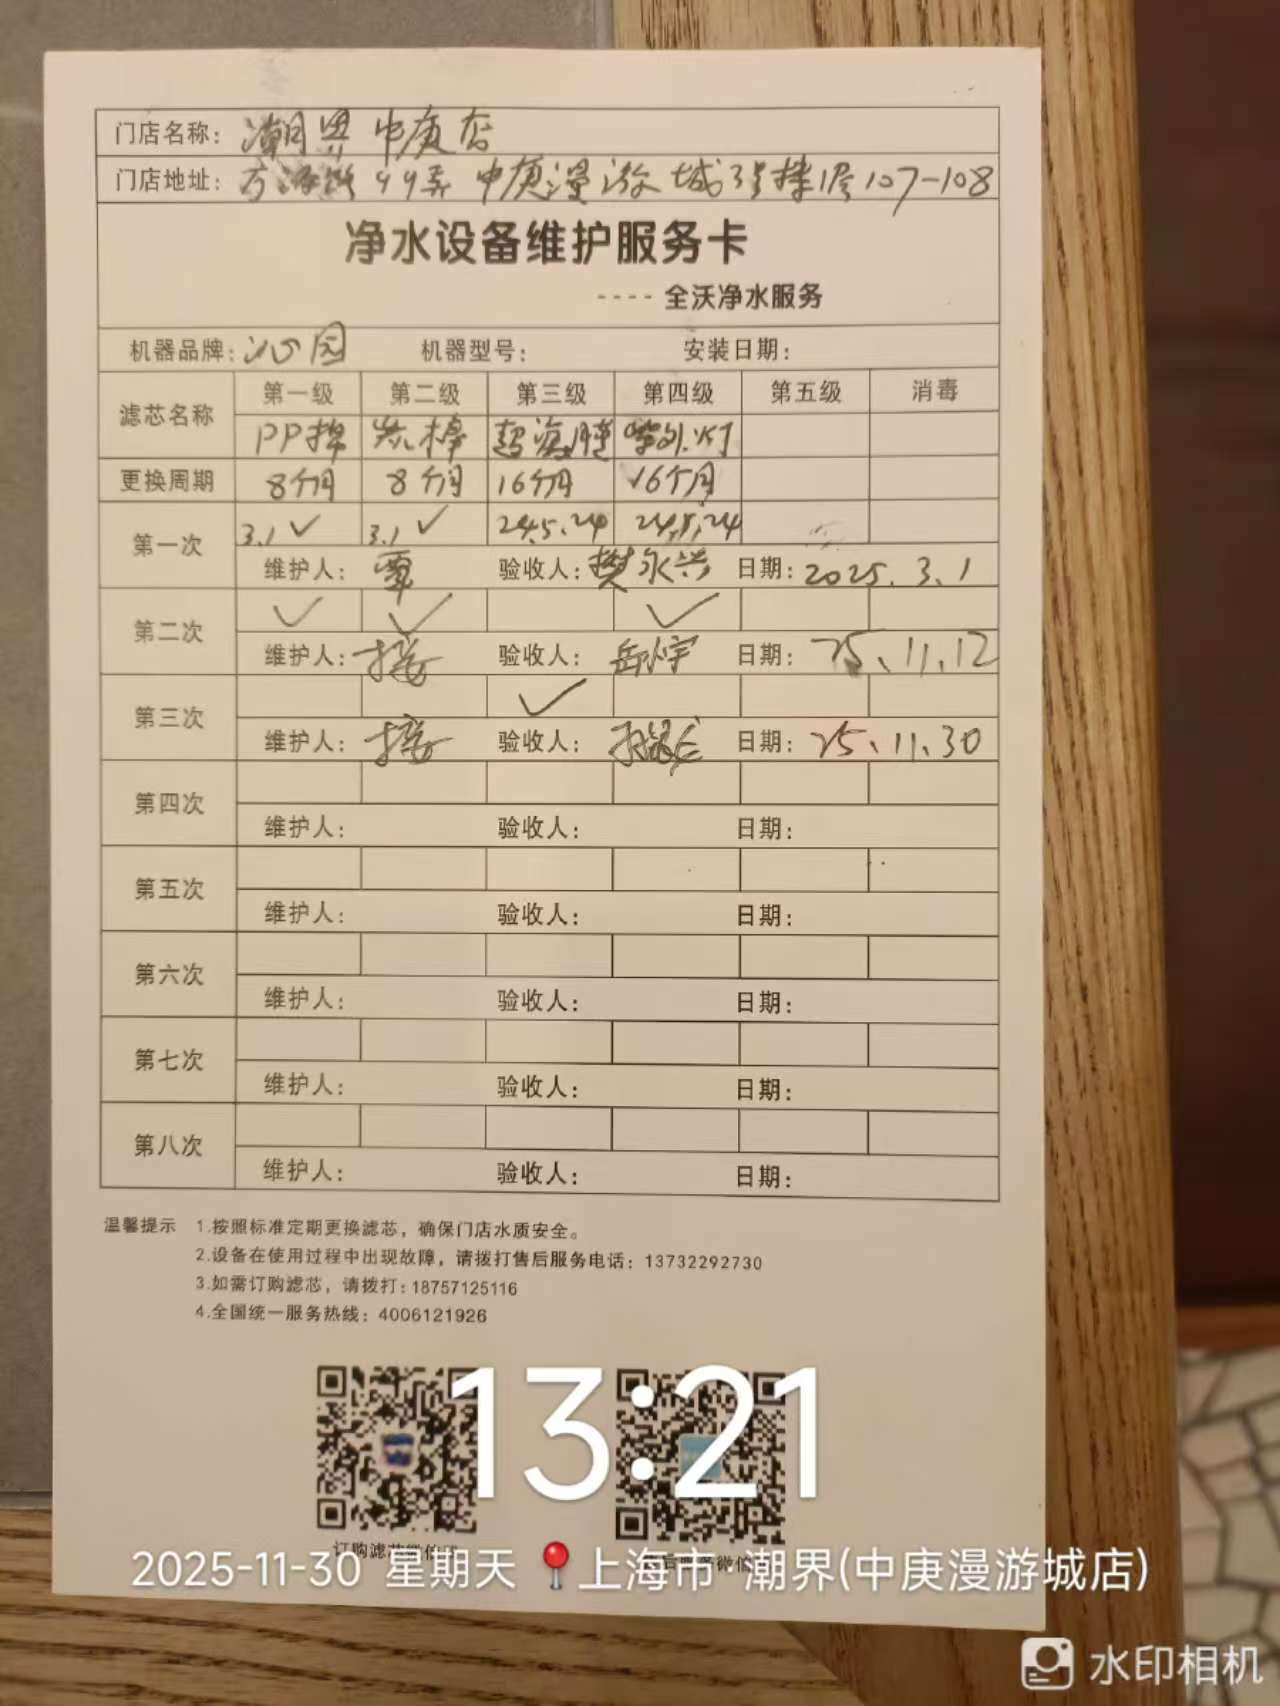 门店名称：潮界中庚店
门店地址：99弄中庚漫游城3号楼1层107-108
净水设备维护服务卡
---- 全沃净水服务
机器品牌：沁园 机器型号： 安装日期：
滤芯名称 第一级 第二级 第三级 第四级 第五级 消毒
PP棉 炭棒 超滤膜 紫外灯
更换周期 8个月 8个月 16个月 16个月
第一次 3.1✓ 3.1✓ 24.5.24 24.5.24
维护人：覃 验收人：樊永兴 日期：2025.3.1
第二次 ✓ ✓ ✓
维护人： 验收人： 日期：25.11.12
第三次 ✓
维护人： 验收人： 日期：25.11.30
第四次
维护人： 验收人： 日期：
第五次
维护人： 验收人： 日期：
第六次
维护人： 验收人： 日期：
第七次
维护人： 验收人： 日期：
第八次
维护人： 验收人： 日期：
温馨提示 1.按照标准定期更换滤芯，确保门店水质安全。
2.设备在使用过程中出现故障，请拨打售后服务电话：13732292730
3.如需订购滤芯，请拨打：18757125116
4.全国统一服务热线：4006121926
13:21
订购滤芯微信
2025-11-30 星期天 上海市·潮界(中庚漫游城店)
水印相机